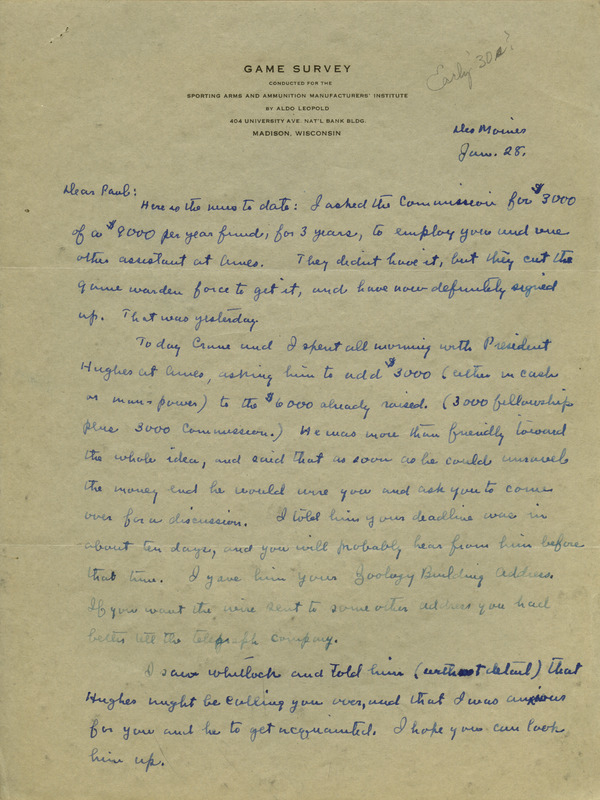 Early '30s?
GAME SURVEY
CONDUCTED FOR THE
SPORTING ARMS AND AMMUNITION MANUFACTURERS' INSTITUTE
BY ALDO LEOPOLD
404 UNIVERSITY AVE. NAT'L BANK BLDG.
MADISON, WISCONSIN
Des Moines
Jan. 28.
Dear Paul:
Here is the news to date: I asked the Commission for $3000
of a $9000 per year fund, for 3 years, to employ you and one
other assistant at Ames. They didnt have it, but they cut the
game warden force to get it, and have now definitely signed
up. That was yesterday
Today Crane and I spent all morning with President
Hughes at Ames, asking him to add $3000 (either in cash
or man-power) to the $6000 already raised. (3000 fellowship
plus 3000 Commission.) He was more than friendly toward
the whole idea, and said that as soon as he could unravel
the money end he would wire you and ask you to come
over for a discussion. I told him your deadline was in
about ten days, and you will probably hear from him before
that time. I gave him your Zoology Building address.
If you want the wire sent to some other address you had
better tell the telegraph company.
I saw Whitlock and told him (without detail) that
Hughes might be calling you over, and that I was anxious
for you and he to get acquainted. I hope you can look
him up.